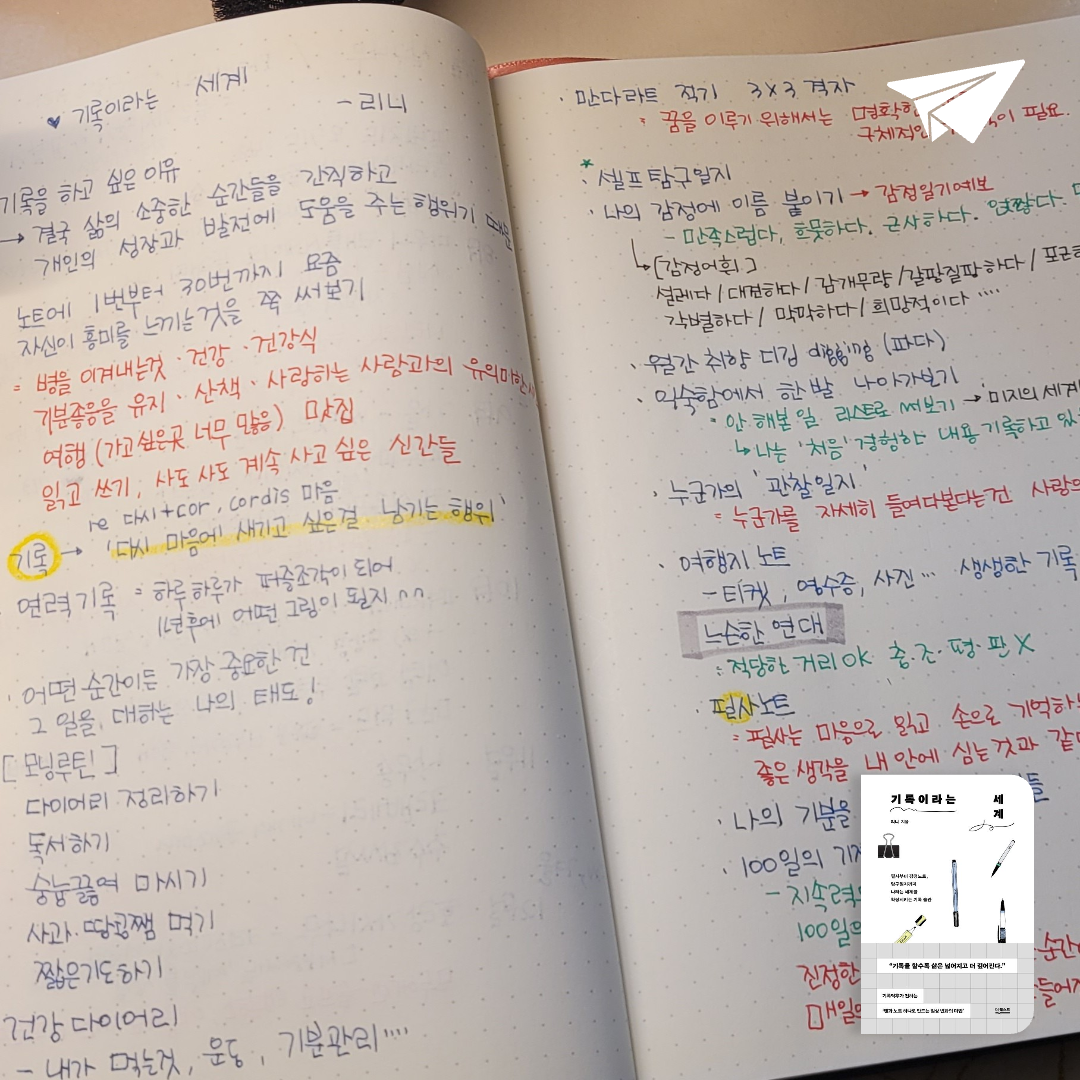 ♥ 기록이라는 세계
- 리니
기록을 하고 싶은 이유
→ 결국 삶의 소중한 순간들을 간직하고
개인의 성장과 발전에 도움을 주는 행위기
노트에 1번부터 30번까지 요즘
자신이 흥미를 느끼는 것을 쭉 써보기
= 병을 이겨내는것 · 건강 · 건강식
기분좋음을 유지 · 산책 · 사랑하는 사람과의 유의미한
여행 (가고싶은곳 너무 많음) 맛집
읽고 쓰기, 사도 사도 계속 사고 싶은 신간들
re 다시 + cor, cordis 마음
기록 → '다시 마음에 새기고 싶은걸 남기는 행위'
연력기록 = 하루하루가 퍼즐조각이 되어
1년후에 어떤 그림이 될지 ^^
· 어떤 순간이든 가장 중요한 건
그 일을 대하는 나의 태도!
[모닝루틴]
다이어리 정리하기
독서하기
숭늉끓여 마시기
사과·땅콩쨈 먹기
짧은기도하기
건강 다이어리
- 내가 먹는것, 운동, 기분관리····
· 만다라트 적기 3X3 격자
= 꿈을 이루기 위해서는 명확한
구체적인 필요.
* · 셀프탐구일지
· 나의 감정에 이름 붙이기 → 감정일기예보
- 만족스럽다, 흐뭇하다. 근사하다. 언짢다.
↳ [감정어휘]
설레다 / 대견하다 / 감개무량 / 갈팡질팡하다 /
각별하다 / 막막하다 / 희망적이다 ····
· 월간 취향 디깅 digging (파다)
· 익숙함에서 한발 나아가보기
· 안 해본 일 리스트로 써보기 → 미지의 세계
↳ 나는 '처음' 경험한 내용 기록하고
· 누군가의 '관찰일지'
= 누군가를 자세히 들여다본다는건 사랑의
· 여행지 노트
- 티켓, 영수증, 사진··· 생생한 기록
느슨한 연대
: 적당한 거리OK 충·조·평·판 X
· 필사노트
= 필사는 마음으로 읽고 손으로 기억하
좋은 생각을 내 안에 심는 것과
· 나의 기분을
· 100일의
- 지속력
100일의
진정한
매일
기록이라는 세계
리니 지음
"기록을 할수록 삶은 넓어지고 더 깊어진다."